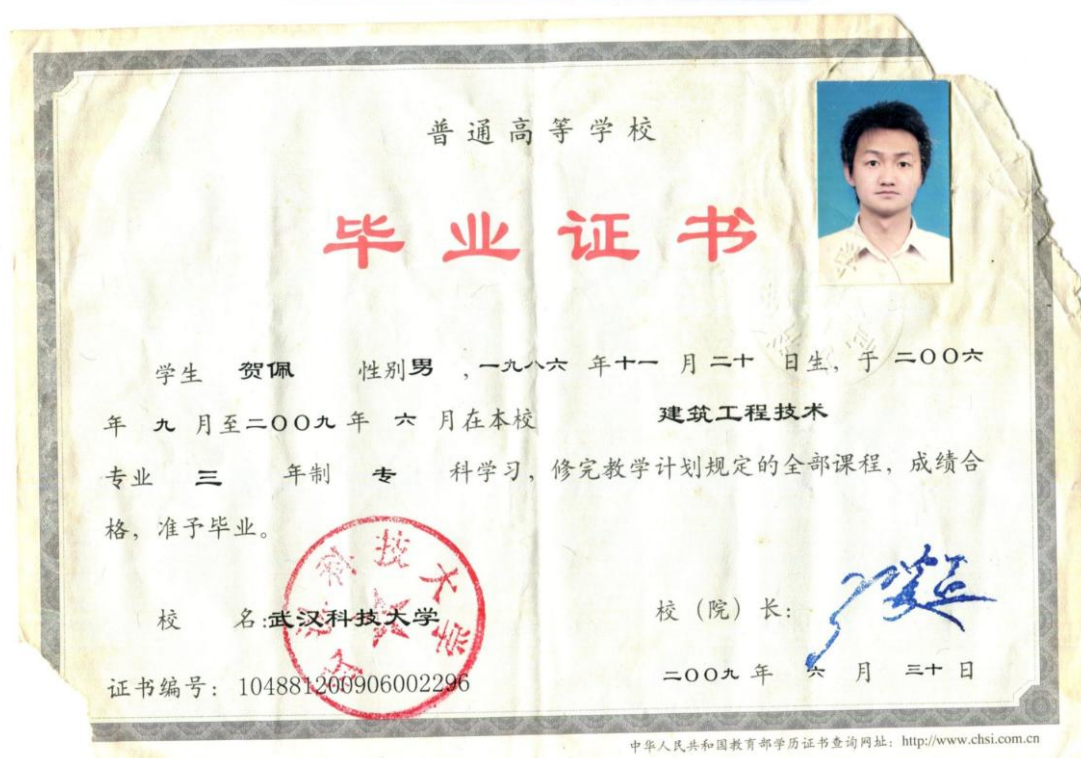 普通高等学校
毕业证书
学生 贺佩 性别男 ,一九八六 年十一 月二十 日生，于 二〇〇六
年 九 月至二〇〇九 年 六 月在本校 建筑工程技术
专业 三 年制 专 科学习，修完教学计划规定的全部课程，成绩合
格，准予毕业。
校 名:武汉科技大学
校（院）长：
武汉科技大学
证书编号：104881200906002296
二〇〇九 年 六 月 三十 日
中华人民共和国教育部学历证书查询网址：http://www.chsi.com.cn